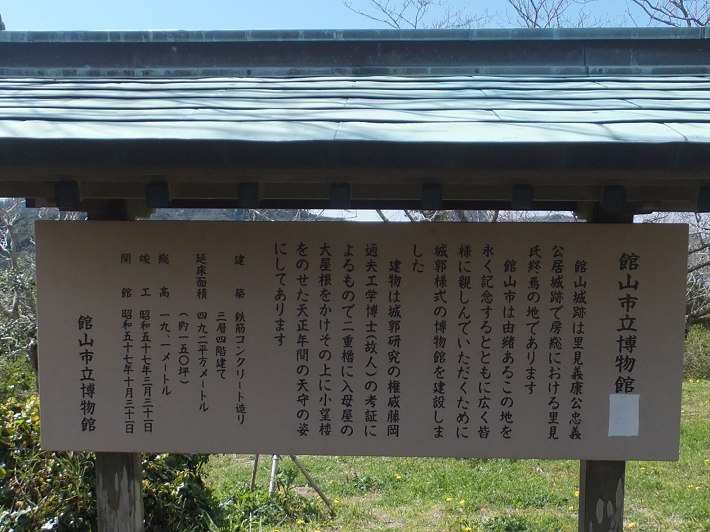 館山市立博物館
館山城跡は里見義康公忠義
公居城跡で房総における里見
氏終焉の地であります
館山市は由緒あるこの地を
永く記念するとともに広く皆
様に親しんでいただくために
城郭様式の博物館を建設しま
した
建物は城郭研究の権威藤岡
通夫工学博士(故人)の考証に
よるもので二重櫓に入母屋の
大屋根をかけその上に小望楼
をのせた天正年間の天守の姿
にしてあります
建築 鉄筋コンクリート造り
三層四階建て
延床面積 四九二平方メートル
(約一五〇坪)
総高 一九.一メートル
竣工 昭和五十七年三月三十一日
開館 昭和五十七年十月三十一日
館山市立博物館